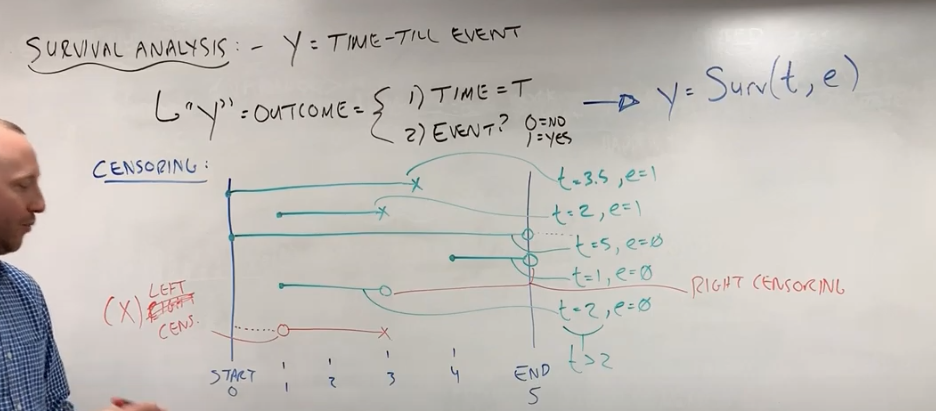 SURVIVAL ANALYSIS: - Y = TIME-TILL EVENT
"Y" = OUTCOME = { 1) TIME = T
2) EVENT? 0=NO
1=YES
y = Surv(t, e)
CENSORING:
t=3.5, e=1
t=2, e=1
t=5, e=0
t=1, e=0
RIGHT CENSORING
t=2, e=0
t>2
(X) LEFT
CENS.
START
0
1
2
3
4
END
5